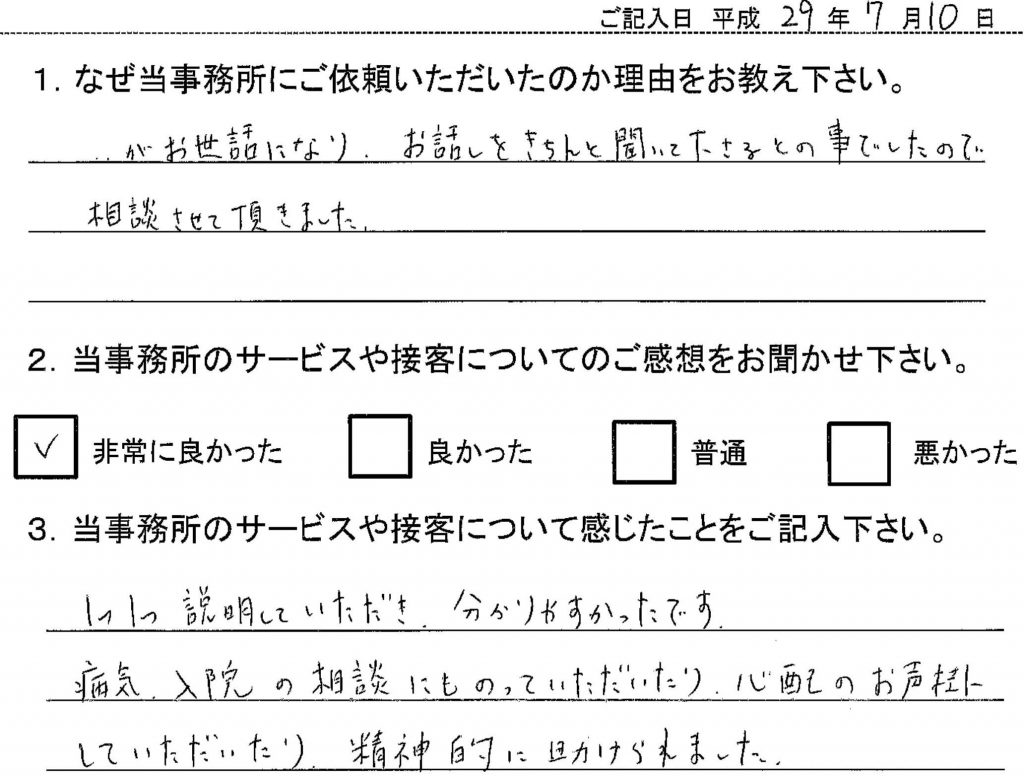 ご記入日 平成 29 年 7 月 10 日
1. なぜ当事務所にご依頼いただいたのか理由をお教え下さい。
がお世話になり、お話しをきちんと聞いて下さるとの事でしたので
相談させて頂きました。
2. 当事務所のサービスや接客についてのご感想をお聞かせ下さい。
✓ 非常に良かった 良かった 普通 悪かった
3. 当事務所のサービスや接客について感じたことをご記入下さい。
1つ1つ 説明していただき、分かりやすかったです。
病気、入院の相談にものっていただいたり、心配のお声掛け
していただいたり、精神的に助けられました。